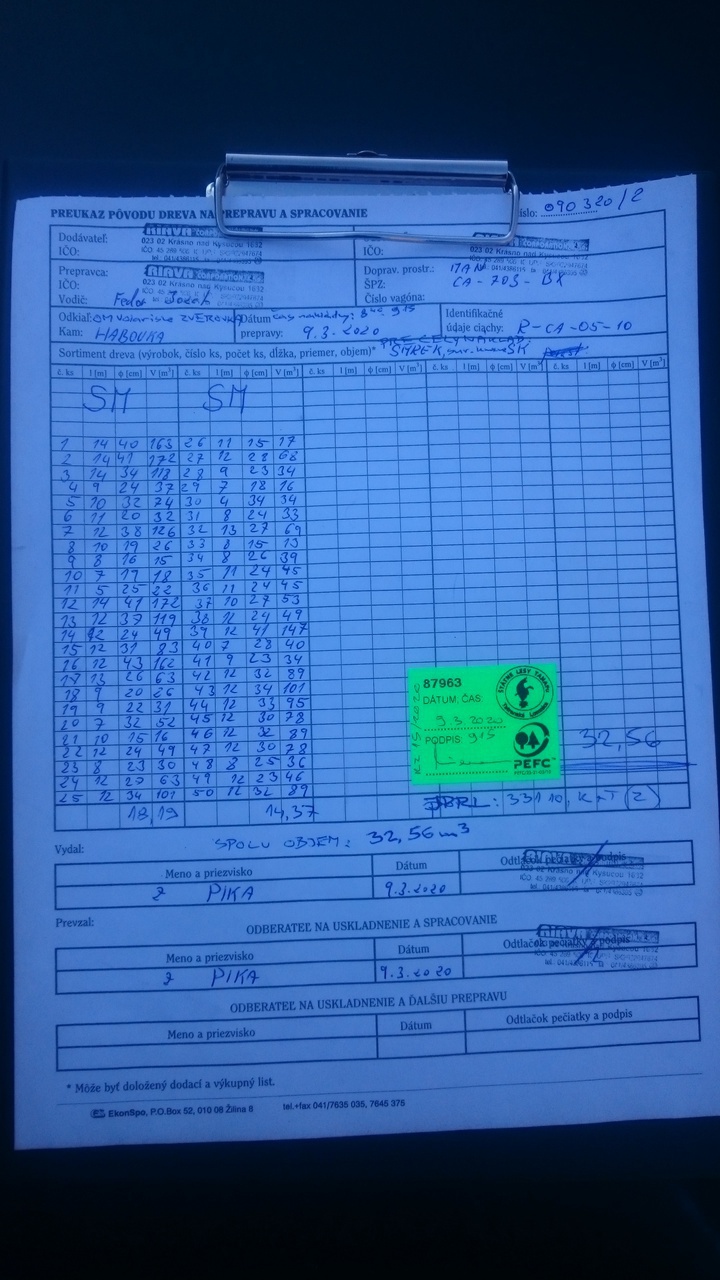 PREUKAZ PÔVODU DREVA NA PREPRAVU A SPRACOVANIE
číslo: 090320/2
Dodávateľ:
023 02 Krásno nad Kysucou 1612
IČO:
IČO:
Prepravca:
IČO:
Vodič:
Doprav. prostr.: MAN
ŠPZ: CA-703-BX
Číslo vagóna:
Odkiaľ: ZVEROVKA
Kam: HABOVKA
Dátum
prepravy: 9.3.2020
čas nakládky: 8 9 15
Identifikačné
údaje ciachy: R-CA-05-10
Sortiment dreva (výrobok, číslo ks, počet ks, dĺžka, priemer, objem)* SMREK,
č. ks l [m] ϕ [cm] V [m³] č. ks l [m] ϕ [cm] V [m³] č. ks l [m] ϕ [cm] V [m³] č. ks l [m] ϕ [cm] V [m³] č. ks l [m] ϕ [cm] V [m³]
SM SM
1 14 40 163 26 11 15 17
2 14 41 172 27 12 28 68
3 14 34 118 28 9 23 34
4 9 24 37 29 7 18 16
5 10 32 74 30 4 34 34
6 11 20 32 31 8 24 33
7 12 38 126 32 13 27 69
8 10 19 26 33 8 15 13
9 8 16 15 34 8 26 39
10 7 19 18 35 11 24 45
11 5 25 22 36 11 24 45
12 14 41 172 37 10 27 53
13 12 37 119 38 12 24 49
14 12 24 49 39 12 41 147
15 12 31 83 40 7 28 40
16 12 43 162 41 9 23 34
17 13 26 63 42 12 32 89
18 9 20 26 43 12 34 101
19 9 22 31 44 12 33 95
20 7 32 52 45 12 30 78
21 10 15 16 46 12 32 89
22 12 24 49 47 12 30 78
23 8 23 30 48 8 25 36
24 12 27 63 49 12 23 46
25 12 34 101 50 12 32 89
18,19 14,37
87963
DÁTUM, ČAS:
9.3.2020
PODPIS: 9 15
ŠTÁTNE LESY TANAPU
PEFC
32,56
SPOLU OBJEM: 32,56 m³
Vydal:
Meno a priezvisko Dátum Odtlačok pečiatky a podpis
PIKA 9.3.2020
Prevzal:
ODBERATEĽ NA USKLADNENIE A SPRACOVANIE
Meno a priezvisko Dátum Odtlačok pečiatky a podpis
PIKA 9.3.2020
ODBERATEĽ NA USKLADNENIE A ĎALŠIU PREPRAVU
Meno a priezvisko Dátum Odtlačok pečiatky a podpis
* Môže byť doložený dodací a výkupný list.
EkonSpo, P.O.Box 52, 010 08 Žilina 8 tel.+fax 041/7635 035, 7645 375